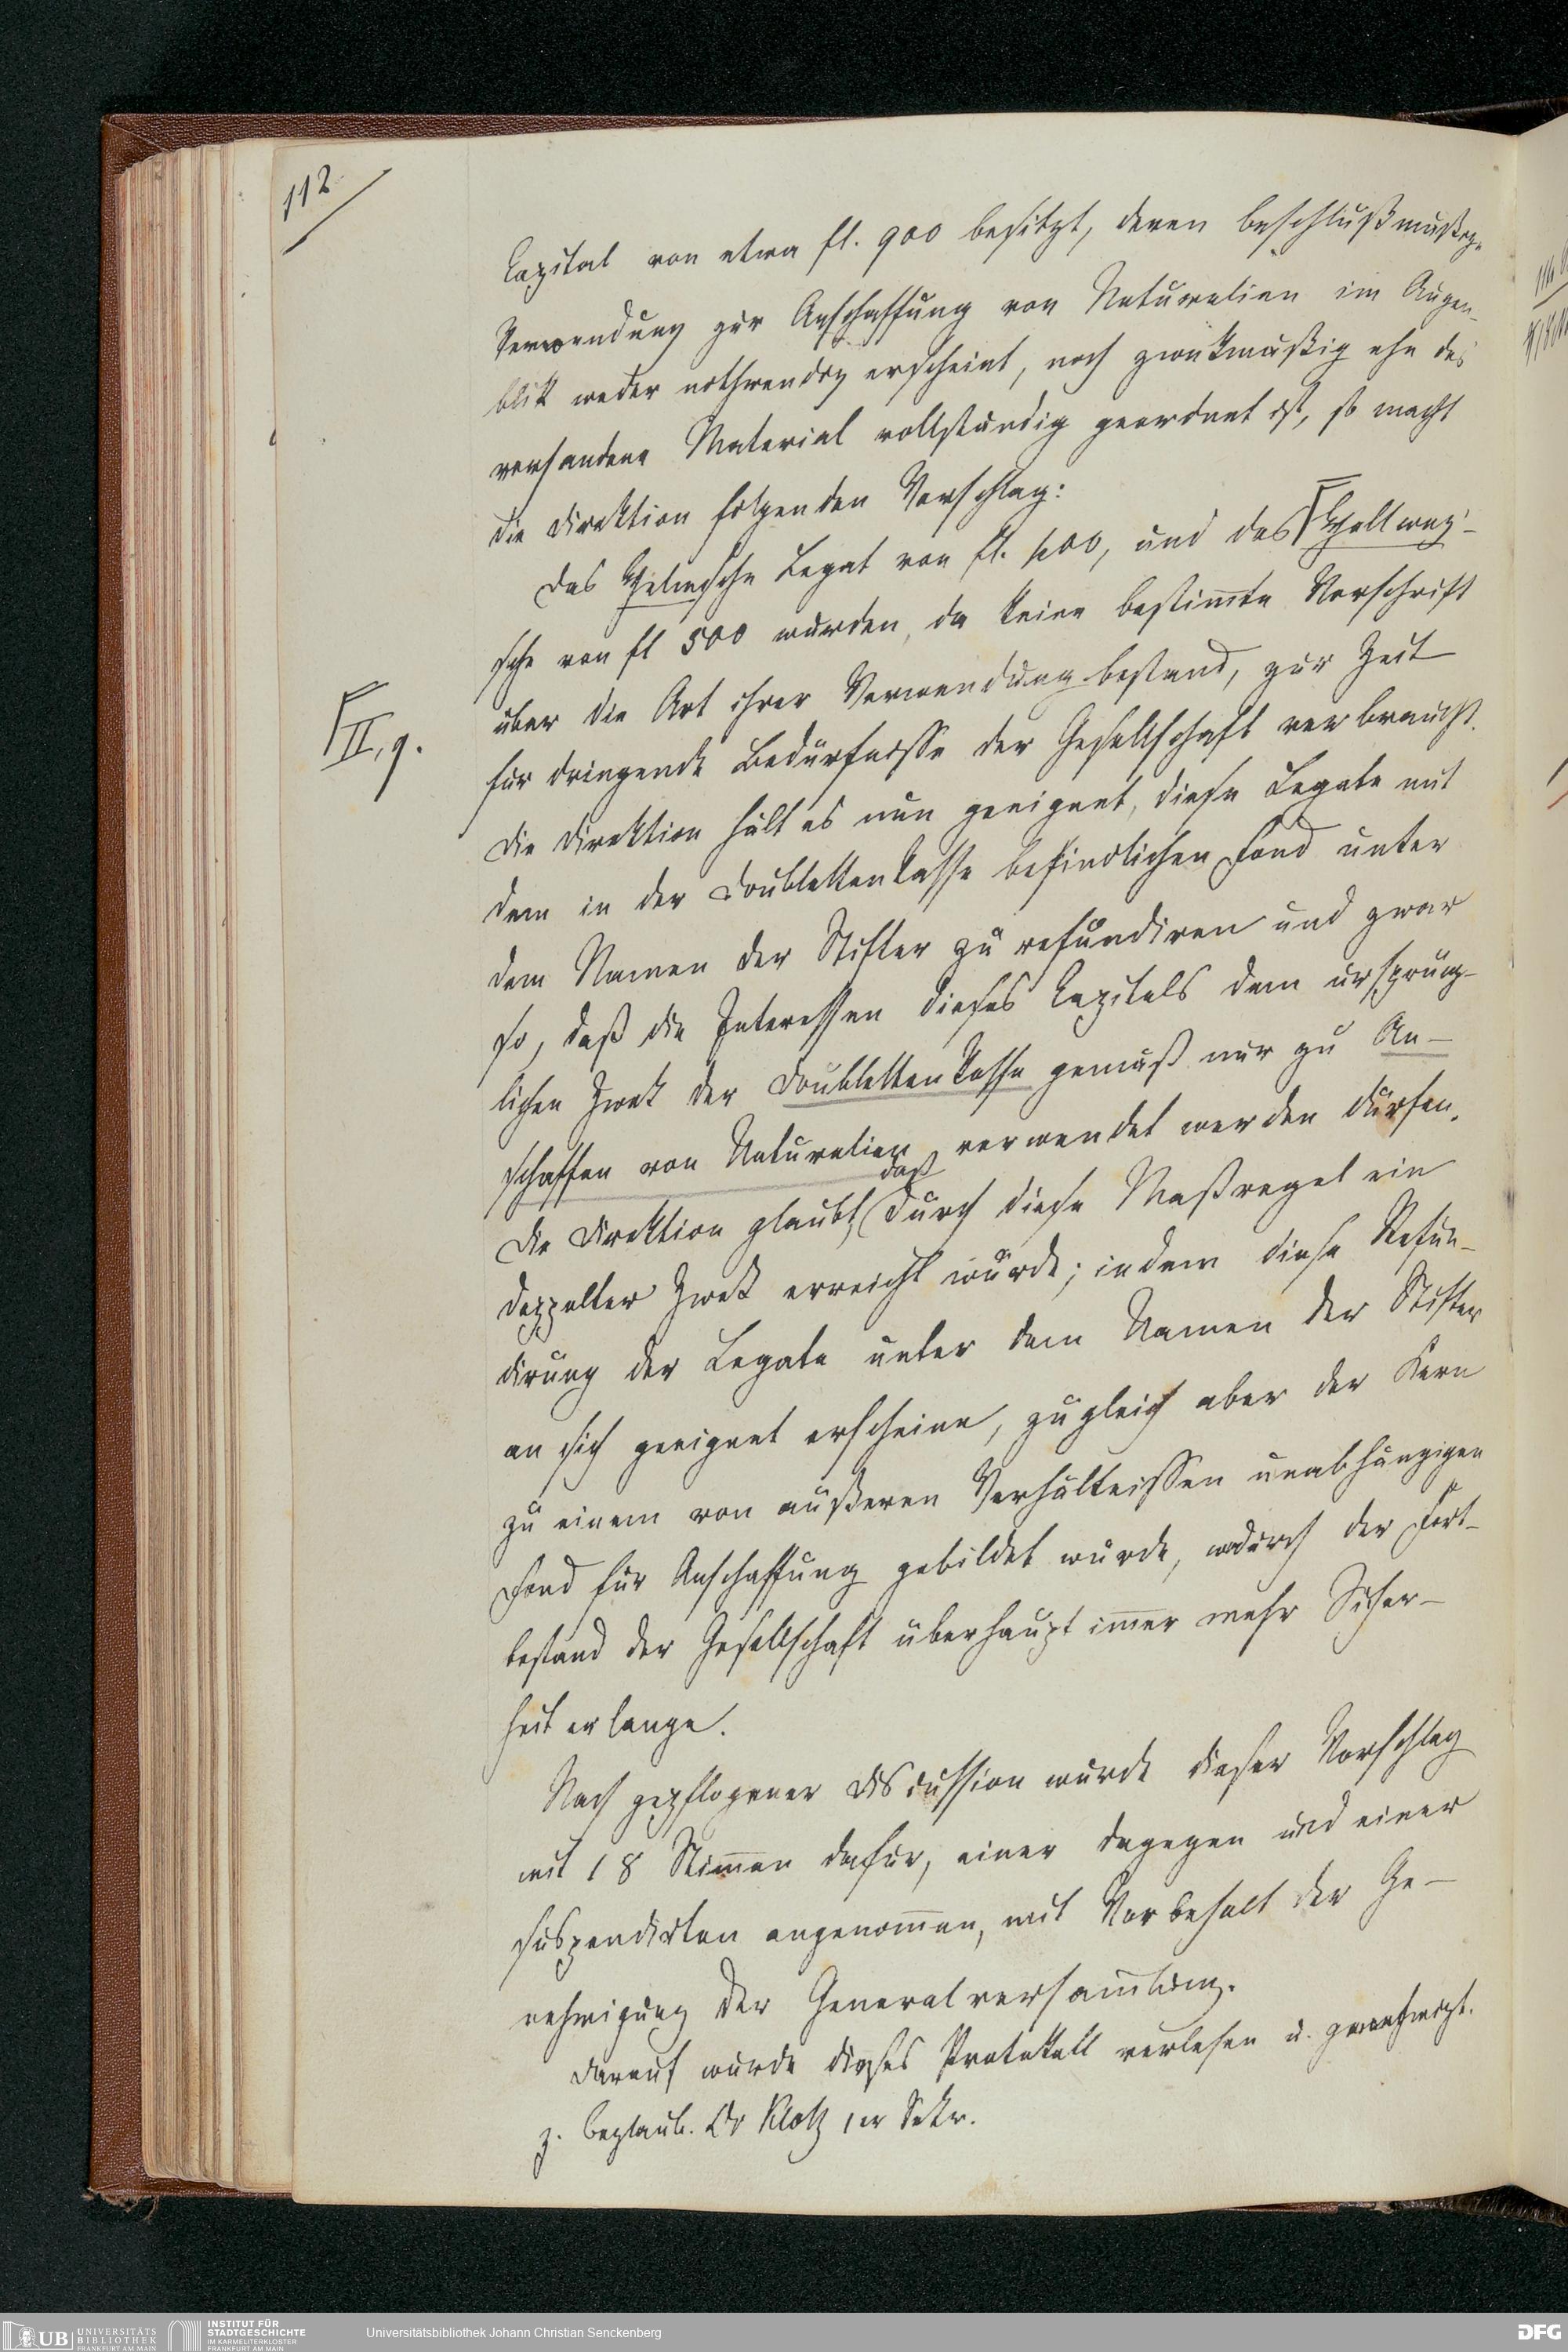 112
Capital von etwa fl. 900 besitzt, deren beschlußmäßige
Verwendung zur Anschaffung von Naturalien im Augen-
blick weder nothwendig erscheint, noch zweckmäßig ehe das
vorhandene Material vollständig geordnet ist, so macht
die Direktion folgenden Vorschlag:
Das sche Legat von fl. 400, und das
sche von fl 500 wurden, da keine bestim̅te Vorschrift
über die Art ihrer Verwendung bestand, zur Zeit
II, 9.
für dringende Bedürfnisse der Gesellschaft verbraucht.
Die Direktion hält es nun geeignet, diese Legate mit
dem in der Doublettenkasse befindlichen Fond unter
dem Namen der Stifter zu refundiren und zwar
so, daß die Interessen dieses Capitals dem ursprüng-
lichen Zweck der Doublettenkasse gemäß nur zu An-
schaffen von Naturalien verwendet werden dürfen.
Die Direktion glaubt, daß durch diese Maßregel ein
doppelter Zweck erreicht würde; indem diese Refun-
dirung der Legate unter dem Namen der Stifter
an sich geeignet erscheine, zugleich aber der Kern
zu einem von äußeren Verhältnissen unabhängigen
Fond für Anschaffung gebildet würde, wodurch der Fort-
bestand der Gesellschaft überhaupt im̅er mehr Sicher-
heit erlange.
Nach gepflogener Discussion wurde dieser Vorschlag
mit 18 Stim̅en dafür, einer dagegen und einer
suspendirten angenom̅en, mit Vorbehalt der Ge-
nehmigung der Generalversam̅lung.
Darauf wurde dieses Protokoll verlesen u. genehmigt.
z. Beglaub. Dr Klotz 1er Sekr.
UB UNIVERSITÄTS
BIBLIOTHEK
FRANKFURT AM MAIN
INSTITUT FÜR
STADTGESCHICHTE
IM KARMELITERKLOSTER
FRANKFURT AM MAIN
Universitätsbibliothek Johann Christian Senckenberg
DFG